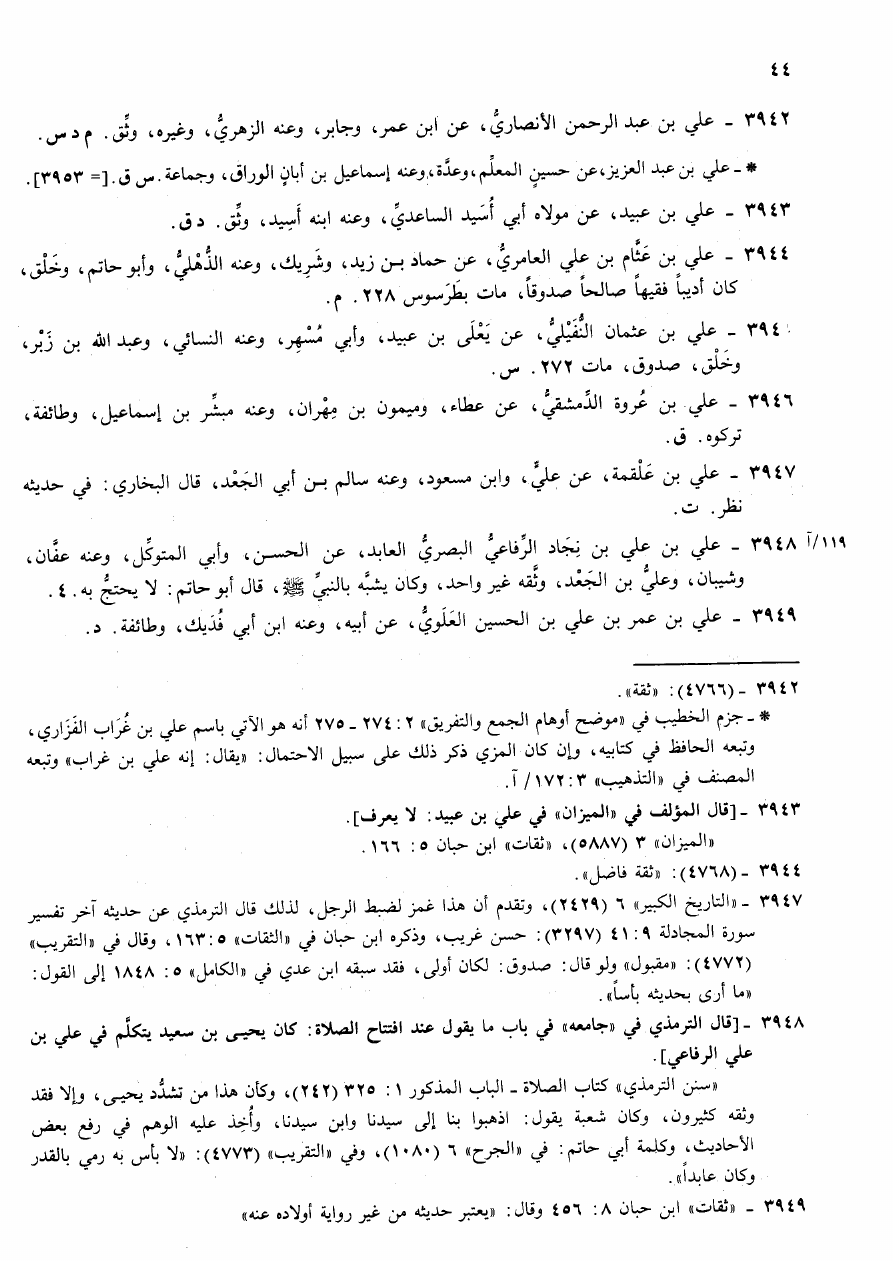 ٤٤
٣٩٤٢ ـ علي بن عبد الرحمن الأنصاريُّ، عن ابن عمر، وجابر، وعنه الزهريُّ، وغيره، وثِّق. م د س.
* ـ علي بن عبد العزيز، عن حسينٍ المعلِّم، وعدَّة، وعنه إسماعيل بن أبانٍ الوراق، وجماعة. س ق. [= ٣٩٥٣].
٣٩٤٣ ـ علي بن عبيد، عن مولاه أبي أُسَيد الساعديِّ، وعنه ابنه أَسِيد، وثِّق. د ق.
٣٩٤٤ ـ علي بن عَثَّام بن علي العامريُّ، عن حماد بـن زيد، وشَرِيك، وعنه الذُّهْليُّ، وأبو حاتم، وخَلْق،
كان أديباً فقيهاً صالحاً صدوقاً، مات بطَرَسوس ٢٢٨. م.
٣٩٤ ـ علي بن عثمان النُّفَيْليُّ، عن يَعْلَى بن عبيد، وأبي مُسْهِر، وعنه النسائي، وعبد الله بن زَبْر،
وخَلْق، صدوق، مات ٢٧٢. س.
٣٩٤٦ ـ علي بن عُروة الدِّمشقيُّ، عن عطاء، وميمون بن مِهْران، وعنه مبشِّر بن إسماعيل، وطائفة،
تركوه. ق.
٣٩٤٧ ـ علي بن عَلْقمة، عن عليٍّ، وابن مسعود، وعنه سالم بـن أبي الجَعْد، قال البخاري: في حديثه
نظر. ت.
١١٩/آ ٣٩٤٨ ـ علي بن علي بن نِجَاد الرِّفاعيُّ البصريُّ العابد، عن الحسـن، وأبي المتوكِّل، وعنه عفَّان،
وشيبان، وعليُّ بن الجَعْد، وثَّقه غير واحد، وكان يشبَّه بالنبيِّ ﷺ، قال أبو حاتم: لا يحتجُّ به. ٤.
٣٩٤٩ ـ علي بن عمر بن علي بن الحسين العَلَويُّ، عن أبيه، وعنه ابن أبي فُدَيك، وطائفة. د.
٣٩٤٢ ـ (٤٧٦٦): «ثقة».
* ـ جزم الخطيب في «موضح أوهام الجمع والتفريق» ٢: ٢٧٤ ـ ٢٧٥ أنه هو الآتي باسم علي بن غُرَاب الفَزَاري،
وتبعه الحافظ في كتابيه، وإن كان المزي ذكر ذلك على سبيل الاحتمال: «يقال: إنه علي بن غراب» وتبعه
المصنف في «التذهيب» ٣: ١٧٢/آ.
٣٩٤٣ ـ [قال المؤلف في «الميزان» في علي بن عبيد: لا يعرف].
«الميزان» ٣ (٥٨٨٧)، «ثقات» ابن حبان ٥: ١٦٦.
٣٩٤٤ ـ (٤٧٦٨): «ثقة فاضل».
٣٩٤٧ ـ «التاريخ الكبير» ٦ (٢٤٢٩)، وتقدم أن هذا غمز لضبط الرجل، لذلك قال الترمذي عن حديثه آخر تفسير
سورة المجادلة ٩: ٤١ (٣٢٩٧): حسن غريب، وذكره ابن حبان في «الثقات» ٥: ١٦٣، وقال في «التقريب»
(٤٧٧٢): «مقبول» ولو قال: صدوق: لكان أولى، فقد سبقه ابن عدي في «الكامل» ٥: ١٨٤٨ إلى القول:
«ما أرى بحديثه بأساً».
٣٩٤٨ ـ [قال الترمذي في «جامعه» في باب ما يقول عند افتتاح الصلاة: كان يحيـى بن سعيد يتكلَّم في علي بن
علي الرفاعي].
«سنن الترمذي» كتاب الصلاة ـ الباب المذكور ١: ٣٢٥ (٢٤٢)، وكأن هذا من تشدُّد يحيـى، وإلا فقد
وثقه كثيرون، وكان شعبة يقول: اذهبوا بنا إلى سيدنا وابن سيدنا، وأُخِذ عليه الوهم في رفع بعض
الأحاديث، وكلمة أبي حاتم: في «الجرح» ٦ (١٠٨٠)، وفي «التقريب» (٤٧٧٣): «لا بأس به رمي بالقدر
وكان عابداً».
٣٩٤٩ ـ «ثقات» ابن حبان ٨: ٤٥٦ وقال: «يعتبر حديثه من غير رواية أولاده عنه»